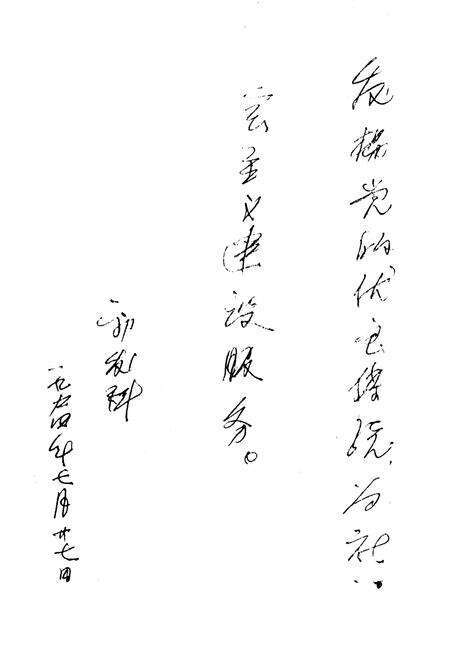 发扬党的优良传统，为社
会主义建设服务。
一九九四年七月廿七日